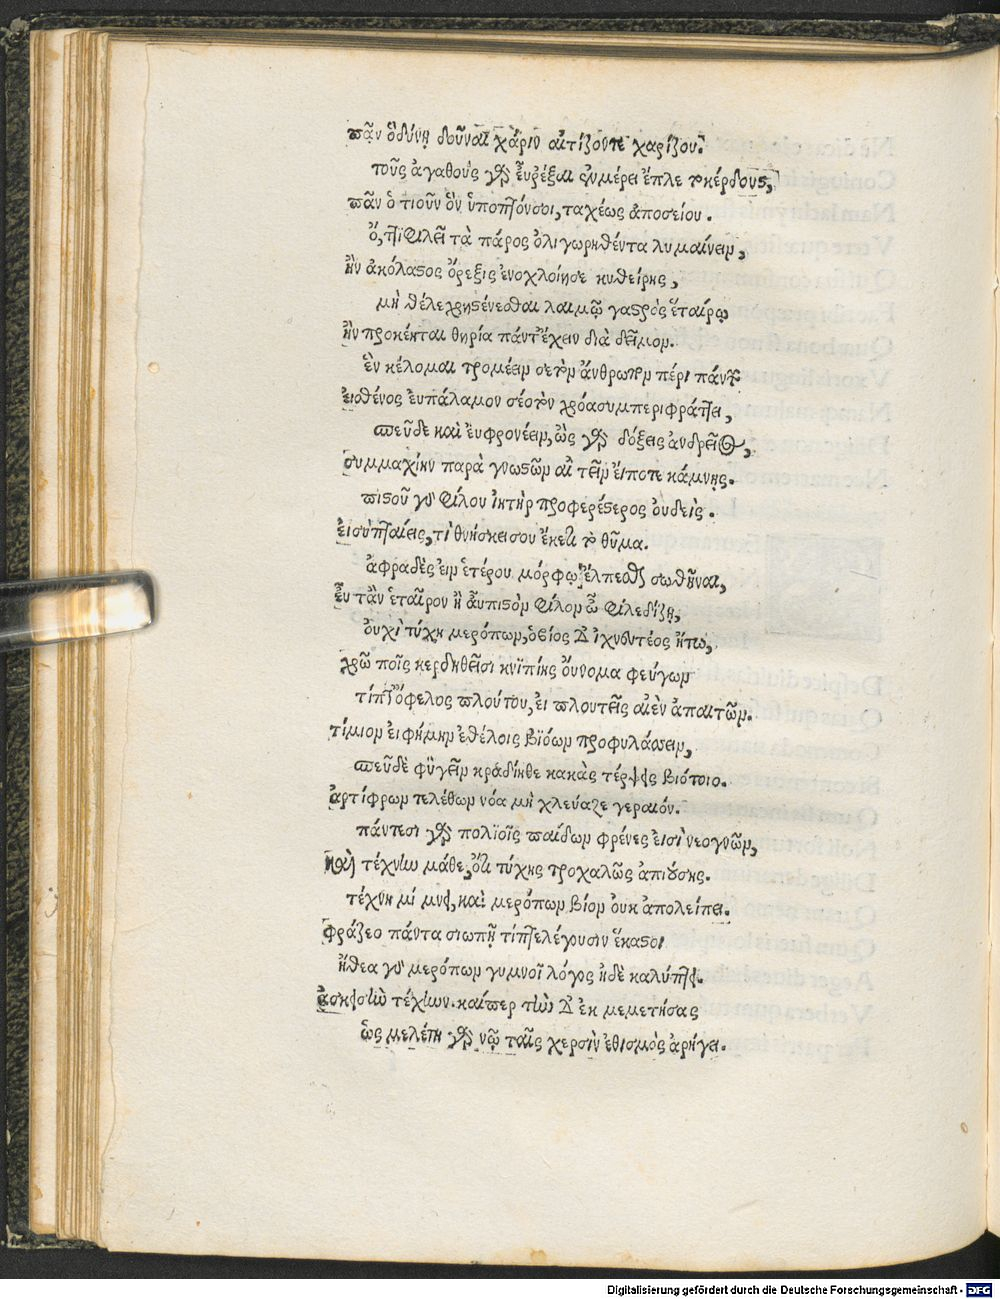 πᾶν ὃ δύνῃ δοῦναι χάριν αἰτίζοντε χαρίζου.
τοὺς ἀγαθοὺς γὰρ εὖ ῥέξαι ἐν μέρει ἔπλετο κέρδους,
πᾶν ὁτιοῦν ὃν ὑποπτόνσοι, ταχέως ἀποσείου.
ὅ, τι φιλεῖ τὰ πάρος ὀλιγωρηθέντα λυμαίνειν,
ἢν ἀκόλαστος ὄρεξις ἐνοχλοίησε κυθείρης,
μὴ θέλε χρηστένεσθαι λαιμῷ γαστρὸς ἑταίρῳ
ἢν προκένται θηρία πάντ' ἔχειν διὰ δεῖμον.
ἓν κέλομαι τρομέειν σε τὸν ἄνθρωπον πέρι πάντων
εἰ σθένος εὐπάλαμον σέο τὸν χρόα συμπεριφράττει,
σπεῦδε καὶ εὐφρονέειν, ὣς γὰρ δόξεις ἀνδρεῖος,
συμμαχίην παρὰ γνωστῶν αἰτεῖν εἴποτε κάμνῃς.
πιστοῦ γὰρ φίλου ἰητὴρ προφερέστερος οὐδείς.
εἰ σὺ πταίεις, τί θνήσκει σου ἕνεκα τὸ θῦμα.
ἀφραδὲς εἰν ἑτέρου μόρῳ ἔλπεσθαι σωθῆναι,
εὖτ' ἂν ἑταῖρον ἢ αὖ πιστὸν φίλον ὦ φίλε δίζῃ,
οὐχὶ τύχη μερόπων, ὁ βίος δ' ἰχνευτέος ἤτω,
χρῶ τοῖς κερδηθεῖσι κνιπίης οὔνομα φεύγων
τίπτ' ὄφελος πλούτου, εἰ πλουτεῖς αἰὲν ἀπαιτῶν.
τίμιον εἰ φήμην ἐθέλοις βιόων προφυλάσσειν,
σπεῦδε φυγεῖν κραδίηθε κακὰς τέρψις βιότοιο.
ἀρτίφρων τελέθων νόα μὴ χλεύαζε γεραιόν.
πάντεσι γὰρ πολιοῖς παίδων φρένες εἰσὶ νεογνῶν,
καὶ τέχνην μάθε, ὅτι τύχης τροχαλῶς ἀπιούσης.
τέχνη μίμνει, καὶ μερόπων βίον οὐκ ἀπολείπει.
φράζεο πάντα σιωπῇ τίπτε λέγουσιν ἕκαστοι
ἤθεα γὰρ μερόπων γυμνοῖ λόγος ἠδὲ καλύπτει.
ἄσκησιν τέχνων. καίπερ τὴν δ' ἐκμεμετήσας
ὡς μελέτη γὰρ νῷ ταῖς χερσὶν ἐθισμὸς ἀρήγει.
Digitalisierung gefördert durch die Deutsche Forschungsgemeinschaft - DFG